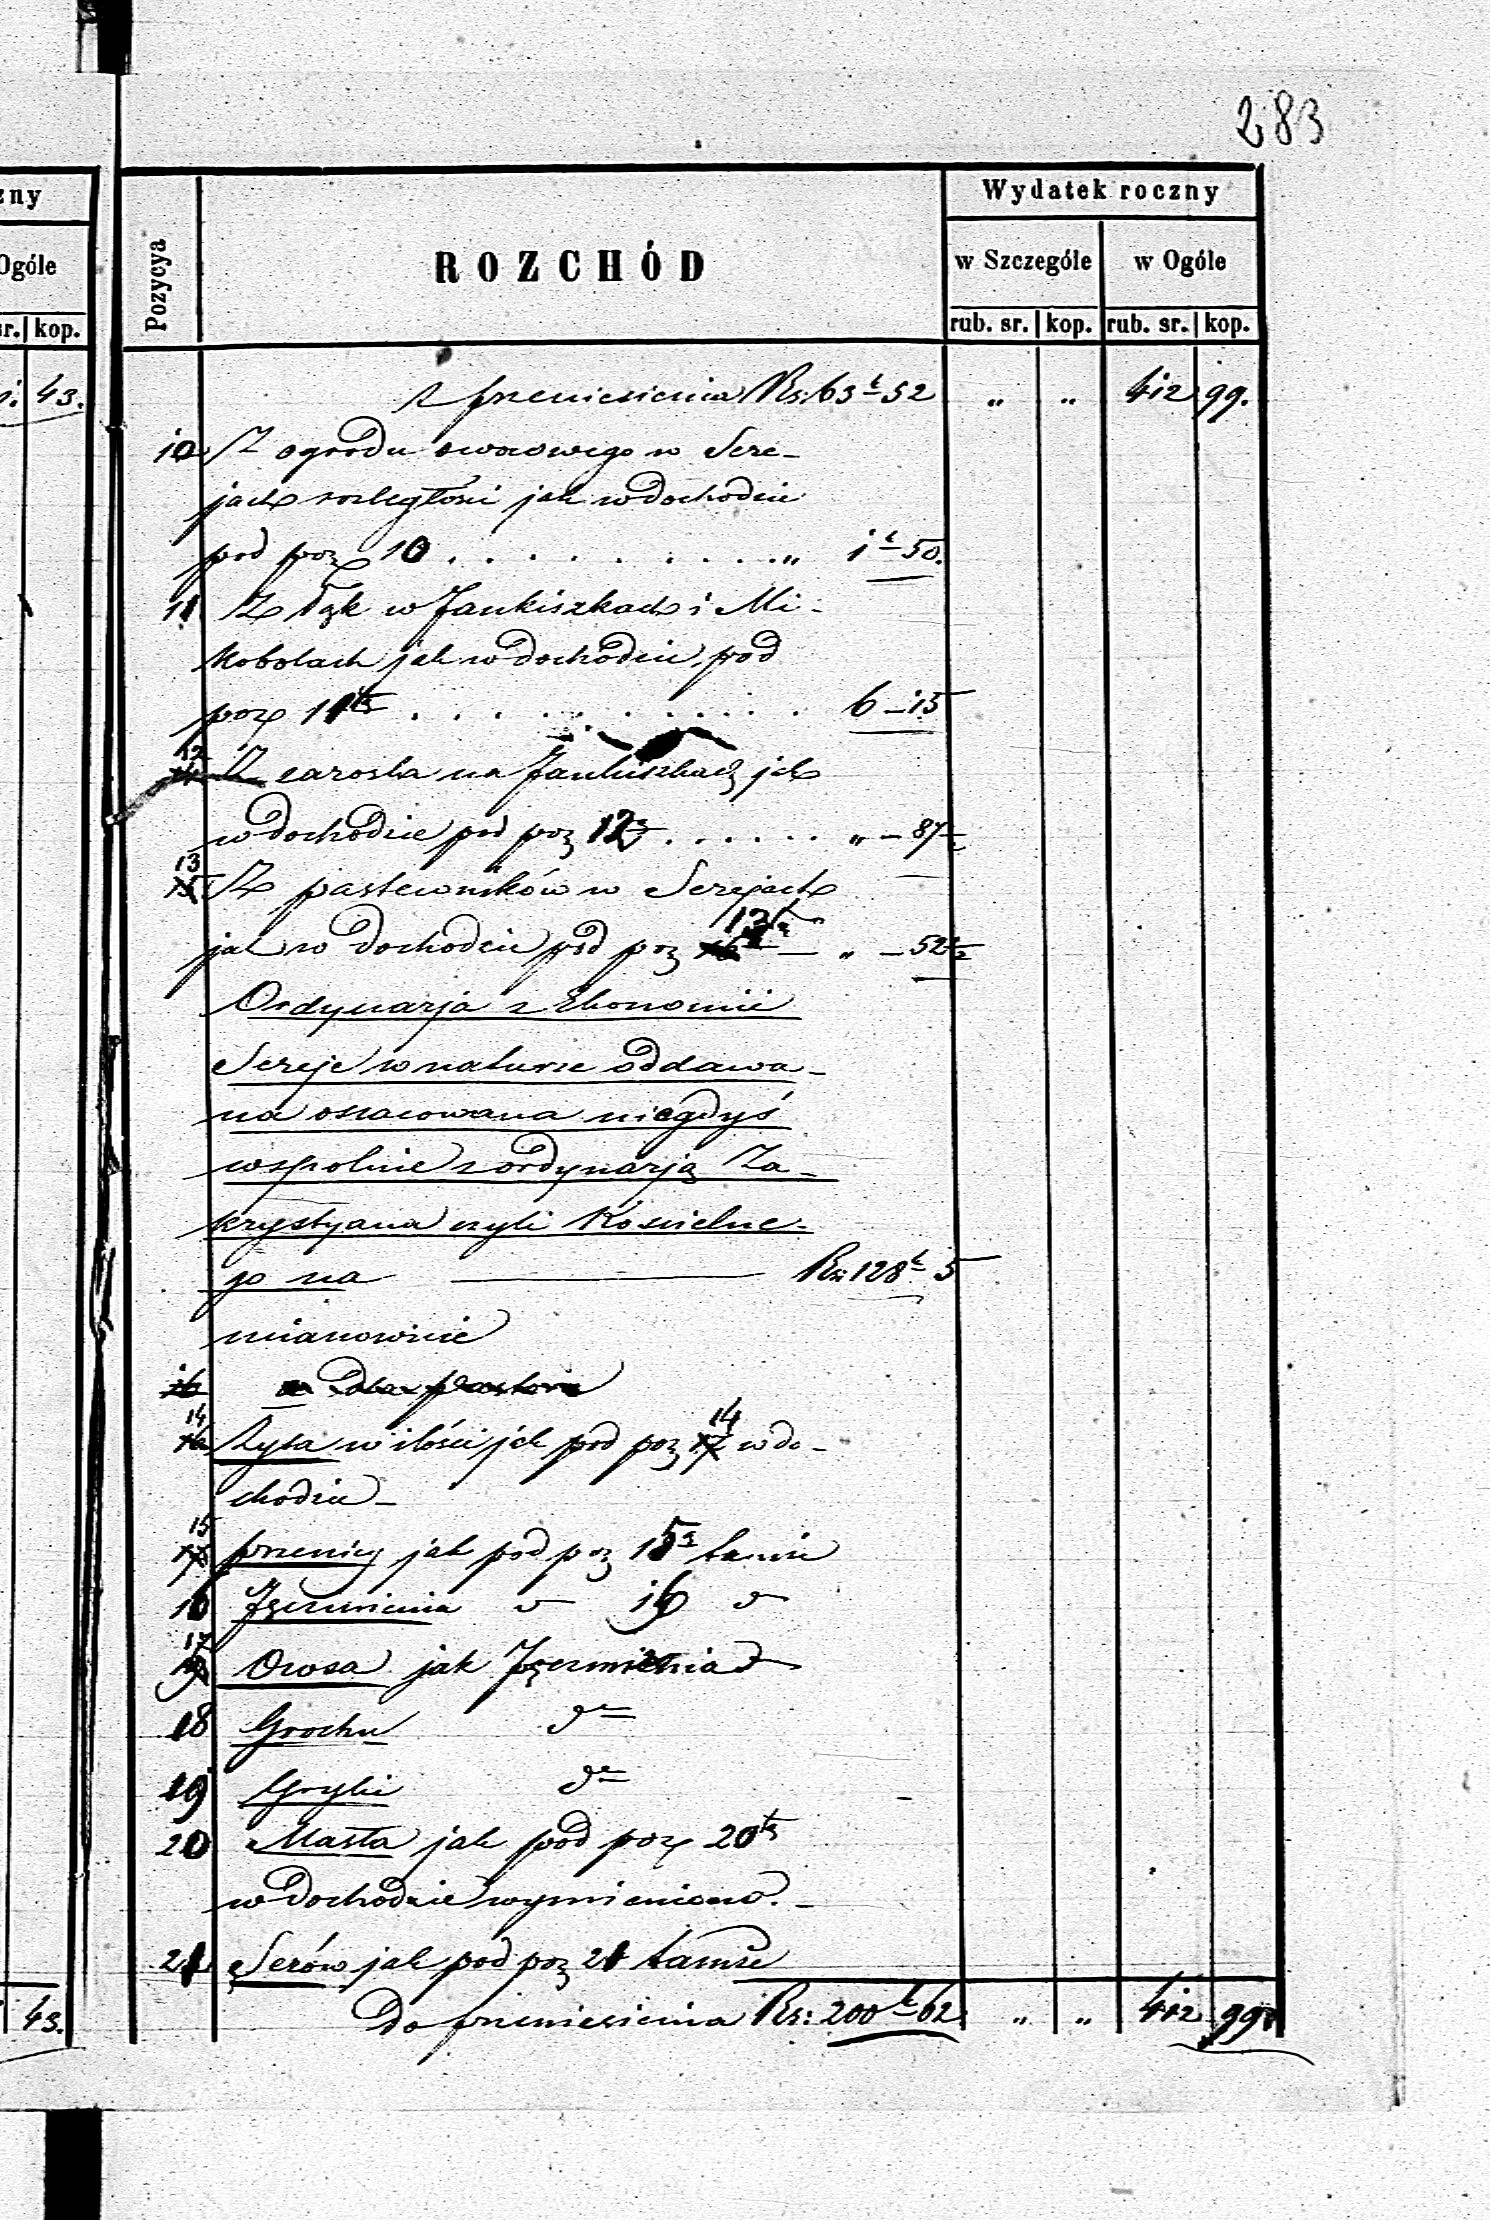 283
zny
Ogóle
sr. kop.
43.
43.
Wydatek roczny
Pozycya ROZCHÓD w Szczególe w Ogóle
rub. sr. kop. rub. sr. kop.
z przeniesienia Rs: 63 k 52 „ „ 412 99.
10 Z ogrodu owocowego w Sere-
jach rozległości jak w dochodzie
pod poz 10 . . . . . . . . . . „ 1 k 50.
11 Z Łąk w Jankiszkach i Mi-
kobolach jak w dochodzie pod
poz 11 . . . . . . . . . . 6 – 15
12 Z zarosla na Jankiszkach jak
w dochodzie pod poz 12 . . . . . . „ – 87
13 15 Z pastewników w Serejach
jak w dochodzie pod poz 13 – „ – 52½
Ordynarja z Ekonomii
Sereje w naturze oddawa-
na oszacowana niegdyś
wspolnie z ordynarją Za-
krystyana czyli Kościelne-
go na — Rs: 128 k 5
mianowicie
16
14 16 Żyta w ilości jak pod poz 14 17 w do-
chodzie –
15 17 pszenicy jak pod poz 15 tamże
16 Jęczmienia d 16 d
17 Owsa jak Jęczmienia d
18 Grochu do
19 Gryki do
20 Masła jak pod poz 20
w dochodzie wymieniono. –
21 Serów jak pod poz 21 tamże
Do przeniesienia Rs: 200 k 62 „ „ 412 99